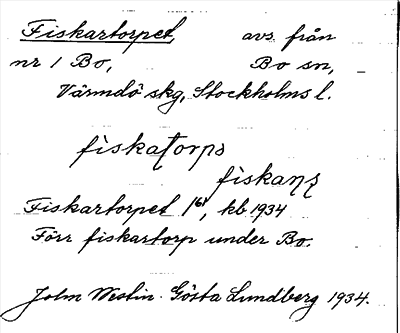 Fiskartorpet, avs. från
nr 1 Bo, Bo sn,
Värmdö skg, Stockholms l.
fiskatorps
fiskaɳʂ
Fiskartorpet 1/61, kb 1934
Förr fiskartorp under Bo.
John Westin. Gösta Lundberg 1934.